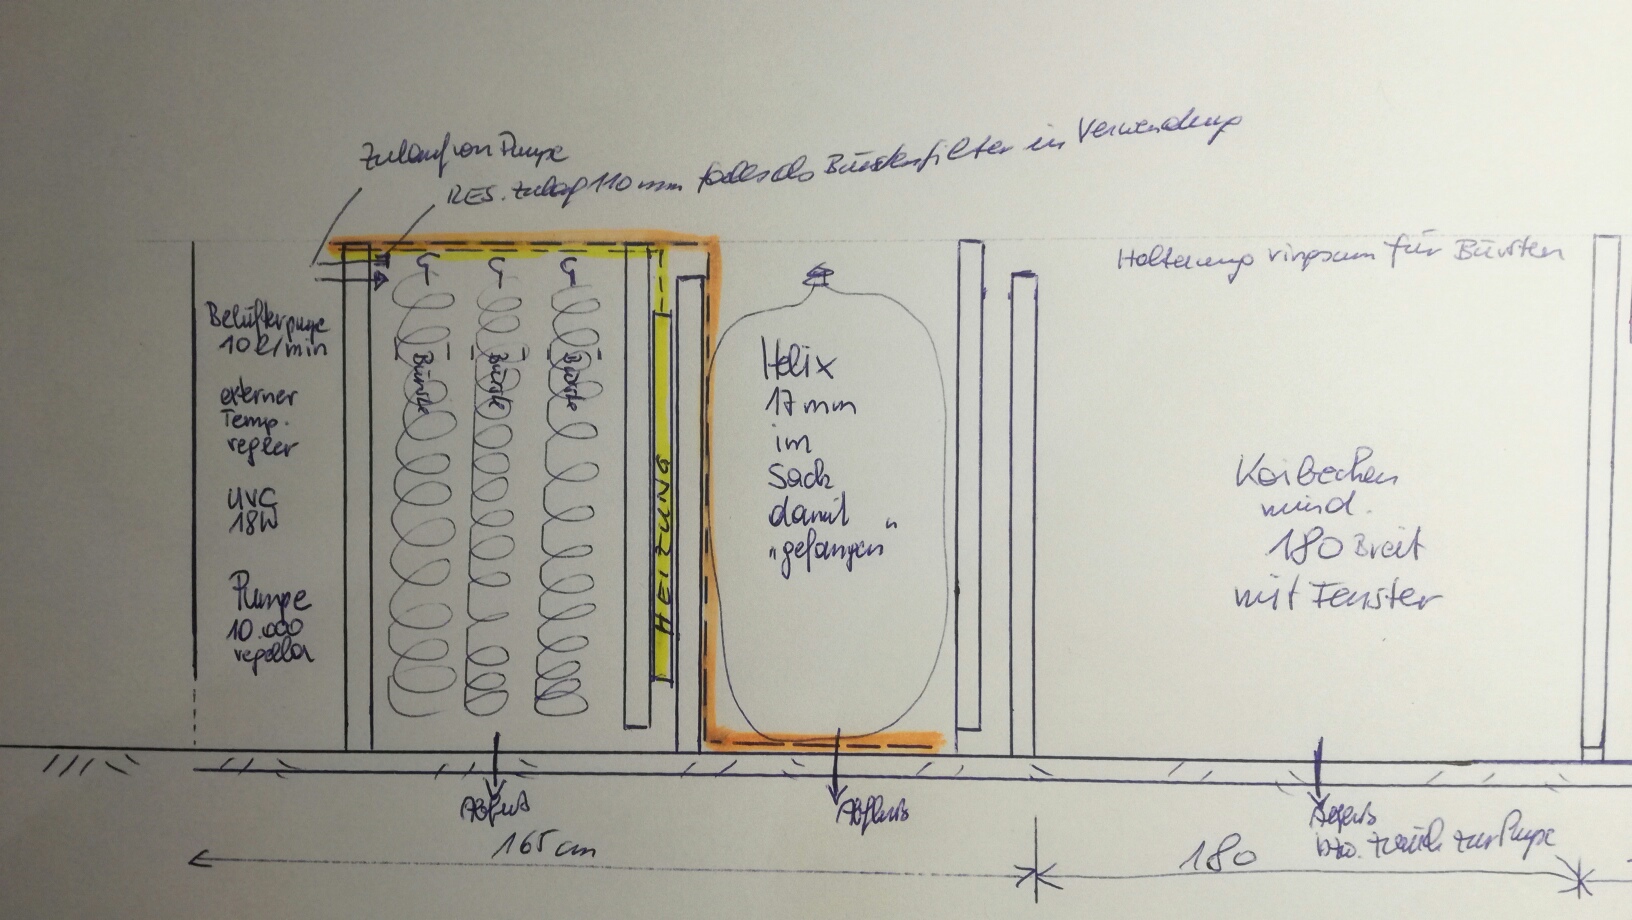 Zulauf von Pumpe
RES. Zulauf 110 mm falls als Bürstenfilter in Verwendung
Halterung ringsum für Bürsten
Belüfterpumpe
10 l/min
externer
Temp.
regler
UVC
18W
Pumpe
10.000
regelbar
Bürste
Bürste
Bürste
HEIZUNG
Helix
17 mm
im
Sack
damit
"gefangen"
Koibecken
mind.
180 Breit
mit Fenster
Abfluß
Abfluß
Abfluß
bzw. zurück zur Pumpe
165 cm
180